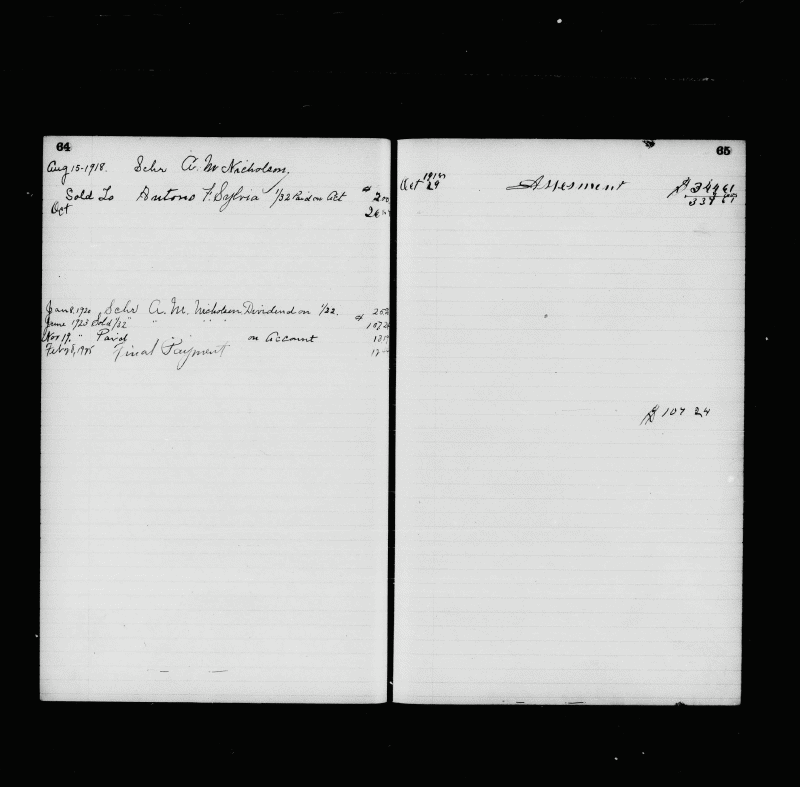 64
Aug 15-1918. Schr A. M Nicholson,
Sold To Antono F. Sylvia 1/32 Paid on Act $ 200
Oct
Jan 8, 1920 Schr A. M. Nicholson Dividend on 1/32.
June 1923 Sold 1/32 " " " " "
Nov 19, " Paid on Account
Final Payment
65
Oct 29 Assesment $
337 61
$ 107 24